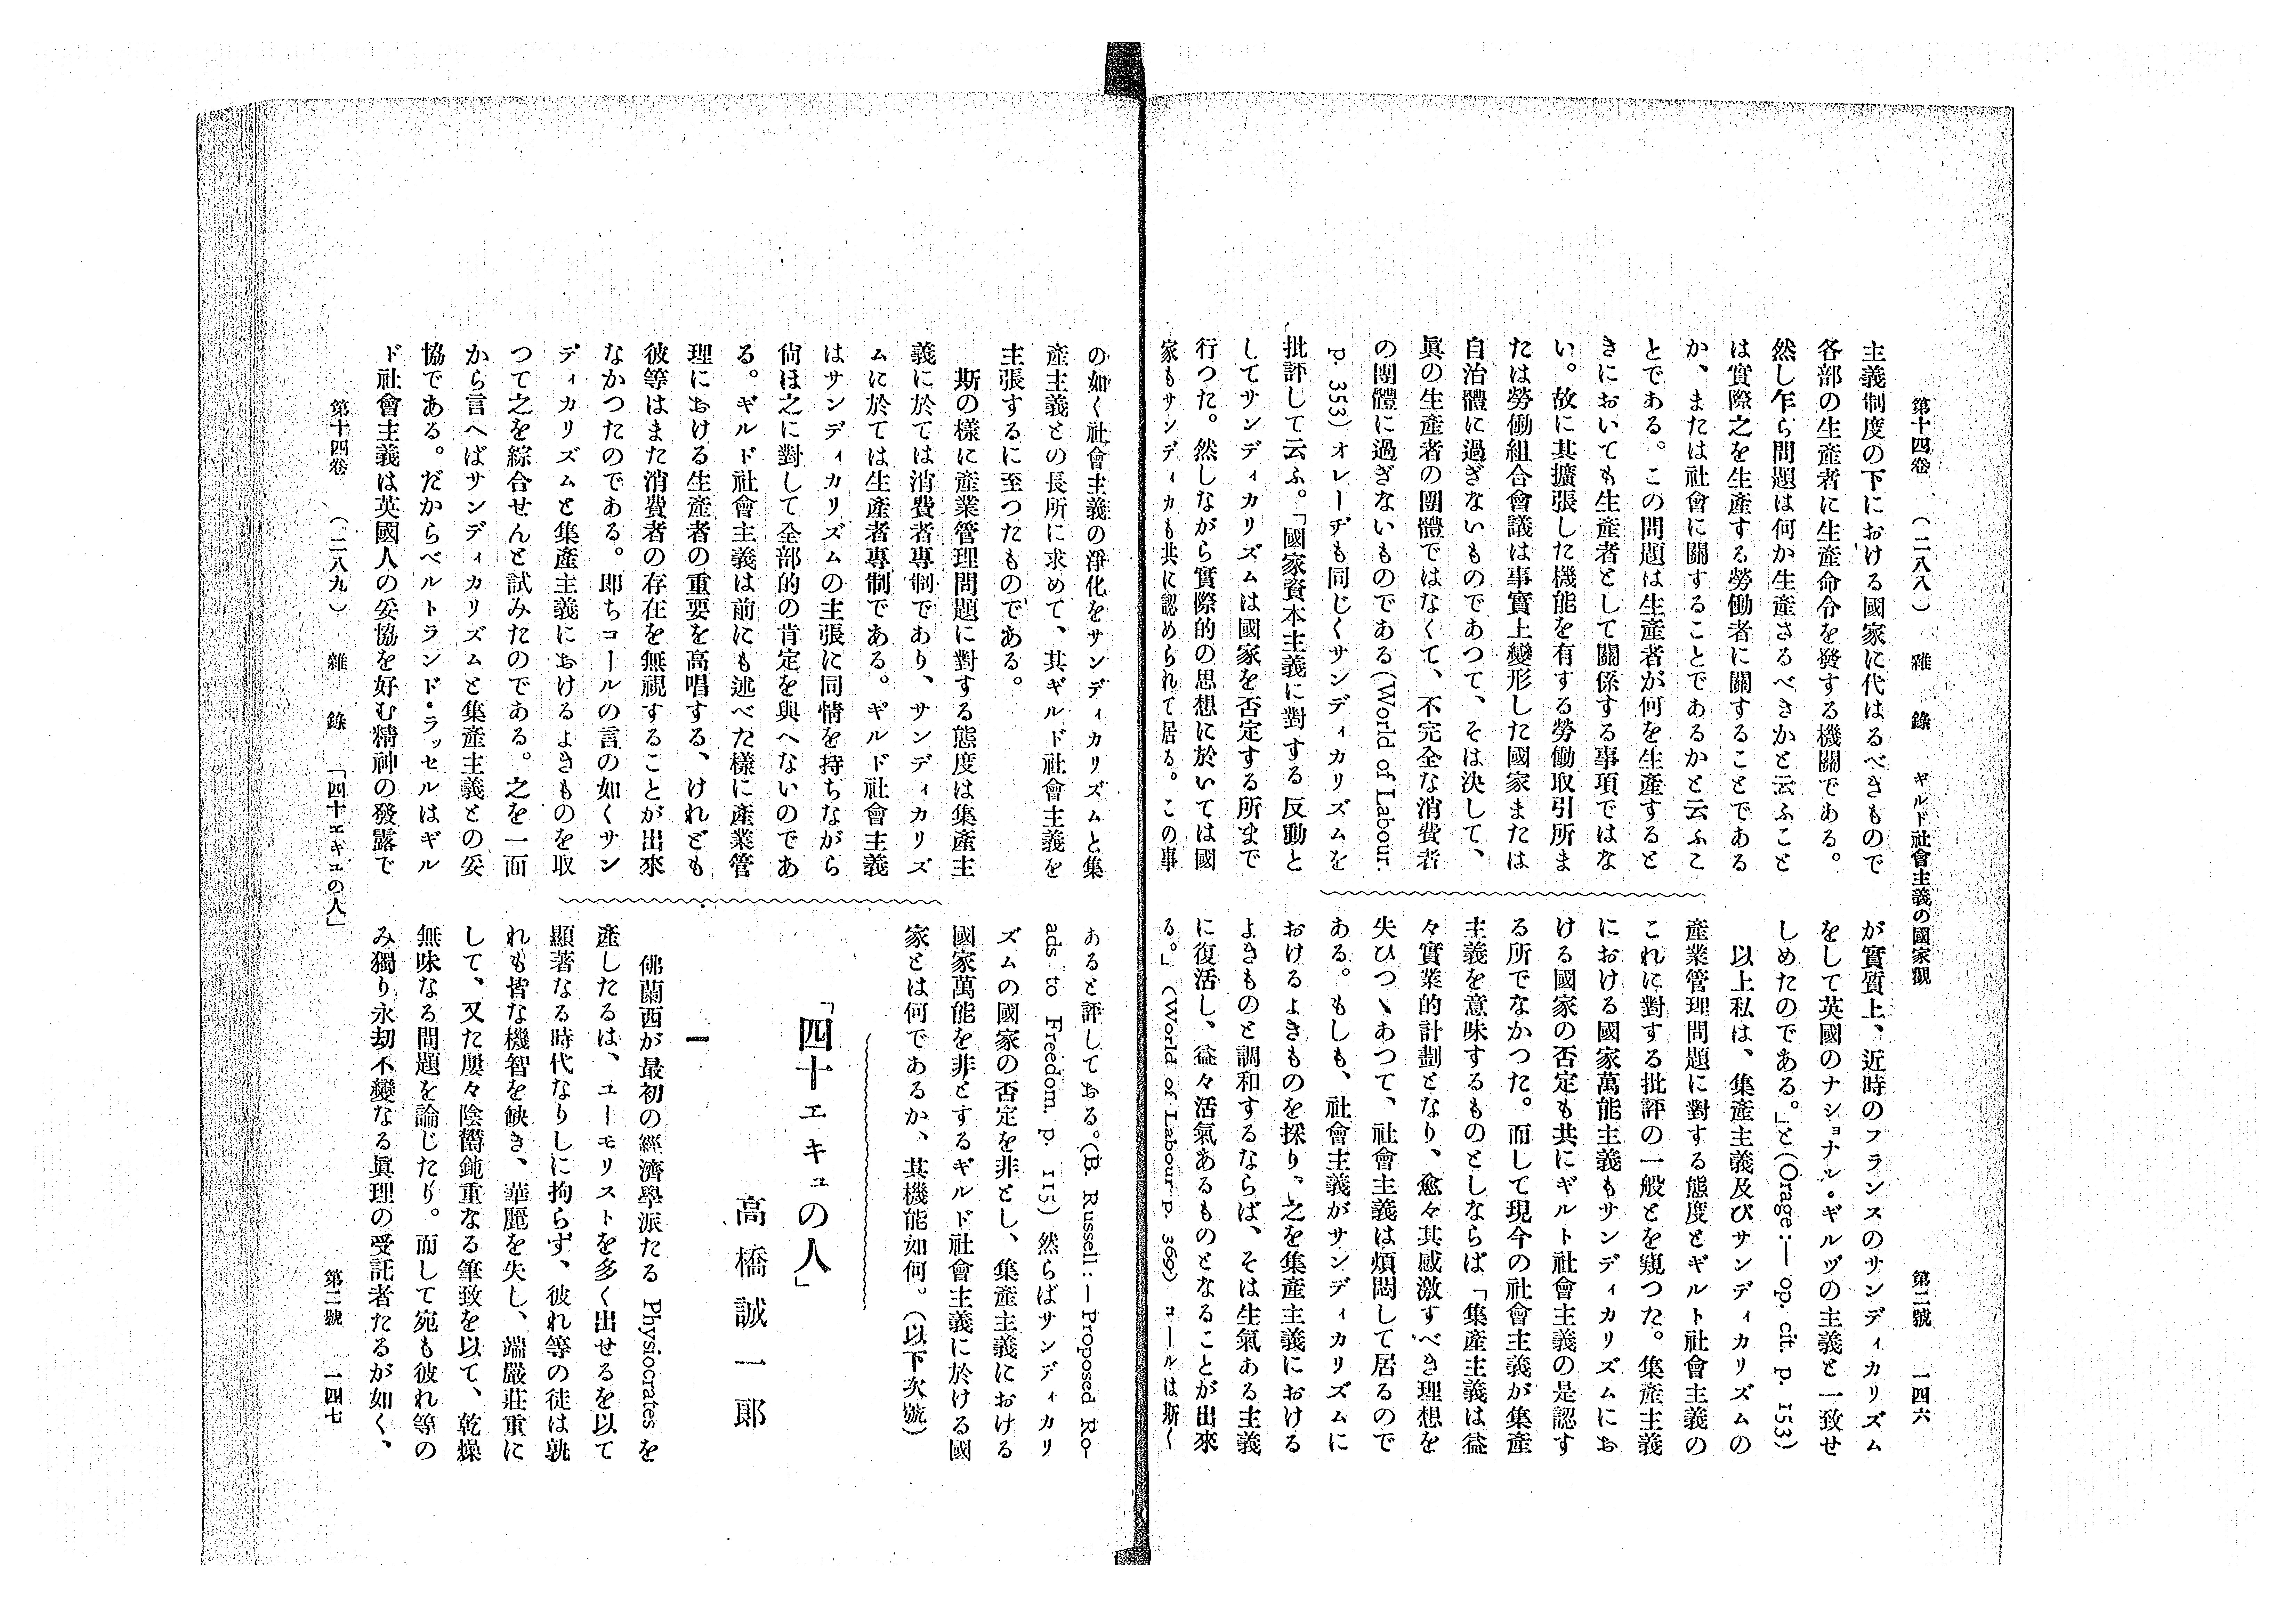 第十四卷　（二八八）　雜　錄　ギルド社會主義の國家觀　第二號　一四六
主義制度の下における國家に代はるべきもので
各部の生產者に生產命令を發する機關である。
然し乍ら問題は何か生產さるべきかと云ふこと
は實際之を生產する勞働者に關することである
か、または社會に關することであるかと云ふこ
とである。この問題は生產者が何を生產すると
きにおいても生產者として關係する事項ではな
い。故に其擴張した機能を有する勞働取引所ま
たは勞働組合會議は事實上變形した國家または
自治體に過ぎないものであつて、そは決して、
眞の生產者の團體ではなくて、不完全な消費者
の團體に過ぎないものである(World of Labour.
p. 353) オレーヂも同じくサンディカリズムを
批評して云ふ。「國家資本主義に對する反動と
してサンディカリズムは國家を否定する所まで
行つた。然しながら實際的の思想に於いては國
家もサンディカも共に認められて居る。この事
が實質上、近時のフランスのサンディカリズム
をして英國のナショナル・ギルヅの主義と一致せ
しめたのである。」と(Orage:— op. cit. p. 153)
以上私は、集產主義及びサンディカリズムの
產業管理問題に對する態度とギルト社會主義の
これに對する批評の一般とを窺つた。集產主義
における國家萬能主義もサンディカリズムにお
ける國家の否定も共にギルト社會主義の是認す
る所でなかつた。而して現今の社會主義が集產
主義を意味するものとしならば「集產主義は益
々實業的計劃となり、愈々其感激すべき理想を
失ひつヽあつて、社會主義は煩悶して居るので
ある。もしも、社會主義がサンディカリズムに
おけるよきものを採り、之を集產主義における
よきものと調和するならば、そは生氣ある主義
に復活し、益々活氣あるものとなることが出來
る。」(World of Labour p. 369) コールは斯く
の如く社會主義の淨化をサンディカリズムと集
產主義との長所に求めて、其ギルド社會主義を
主張するに至つたものである。
斯の樣に產業管理問題に對する態度は集產主
義に於ては消費者專制であり、サンディカリズ
ムに於ては生產者專制である。ギルド社會主義
はサンディカリズムの主張に同情を持ちながら
尙ほ之に對して全部的の肯定を與へないのであ
る。ギルド社會主義は前にも述べた樣に產業管
理における生產者の重要を高唱する、けれども
彼等はまた消費者の存在を無視することが出來
なかつたのである。卽ちコールの言の如くサン
ディカリズムと集產主義におけるよきものを取
つて之を綜合せんと試みたのである。之を一面
から言へばサンディカリズムと集產主義との妥
協である。だからベルトランド・ラッセルはギル
ド社會主義は英國人の妥協を好む精神の發露で
あると評しておる。(B. Russell:—Proposed Ro-
ads to Freedom. p. 115) 然らばサンディカリ
ズムの國家の否定を非とし、集產主義における
國家萬能を非とするギルド社會主義に於ける國
家とは何であるか、其機能如何。(以下次號)
「四十エキュの人」
高橋誠一郞
一
佛蘭西が最初の經濟學派たる Physiocrates を
產したるは、ユーモリストを多く出せるを以て
顯著なる時代なりしに拘らず、彼れ等の徒は孰
れも皆な機智を缺き、華麗を失し、端嚴莊重に
して、又た屢々陰鬱鈍重なる筆致を以て、乾燥
無味なる問題を論じたり。而して宛も彼れ等の
み獨り永劫不變なる眞理の受託者たるが如く、
第十四卷　（二八九）　雜　錄　「四十エキュの人」　第二號　一四七